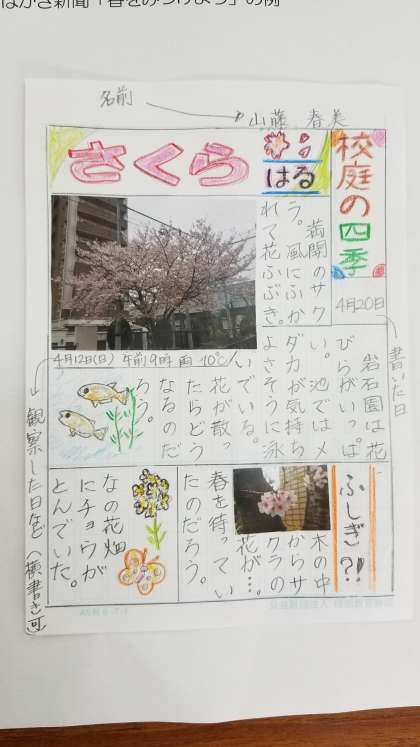 はがき新聞「春をみつけよう」の例
名前
山藤 春美
校庭の四季
4月20日
書いた日
はる
さくら
満開のサク
ラ。風にふか
れて花ふぶき。
4月12日(日) 午前9時 雨 10℃
岩石園は花
びらがいっぱ
い。池ではメ
ダカが気持ち
よさそうに泳
いでいる。
花が散っ
たらどう
なるのだ
ろう。
ふしぎ?!
木の中
からサ
クラの
花が…。
春を待ってい
たのだろう。
なの花畑
にチョウが
とんでいた。
観察した日など(横書き可)